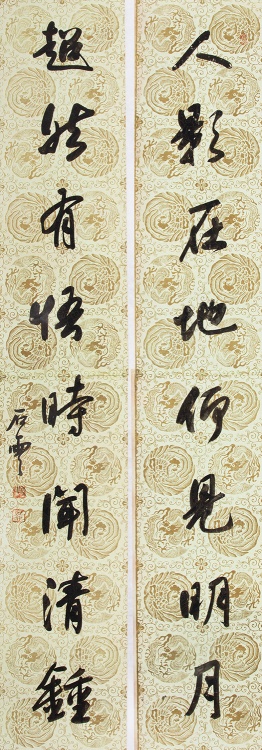 人影在地仰見明月
超然有悟時聞清鍾
石雲